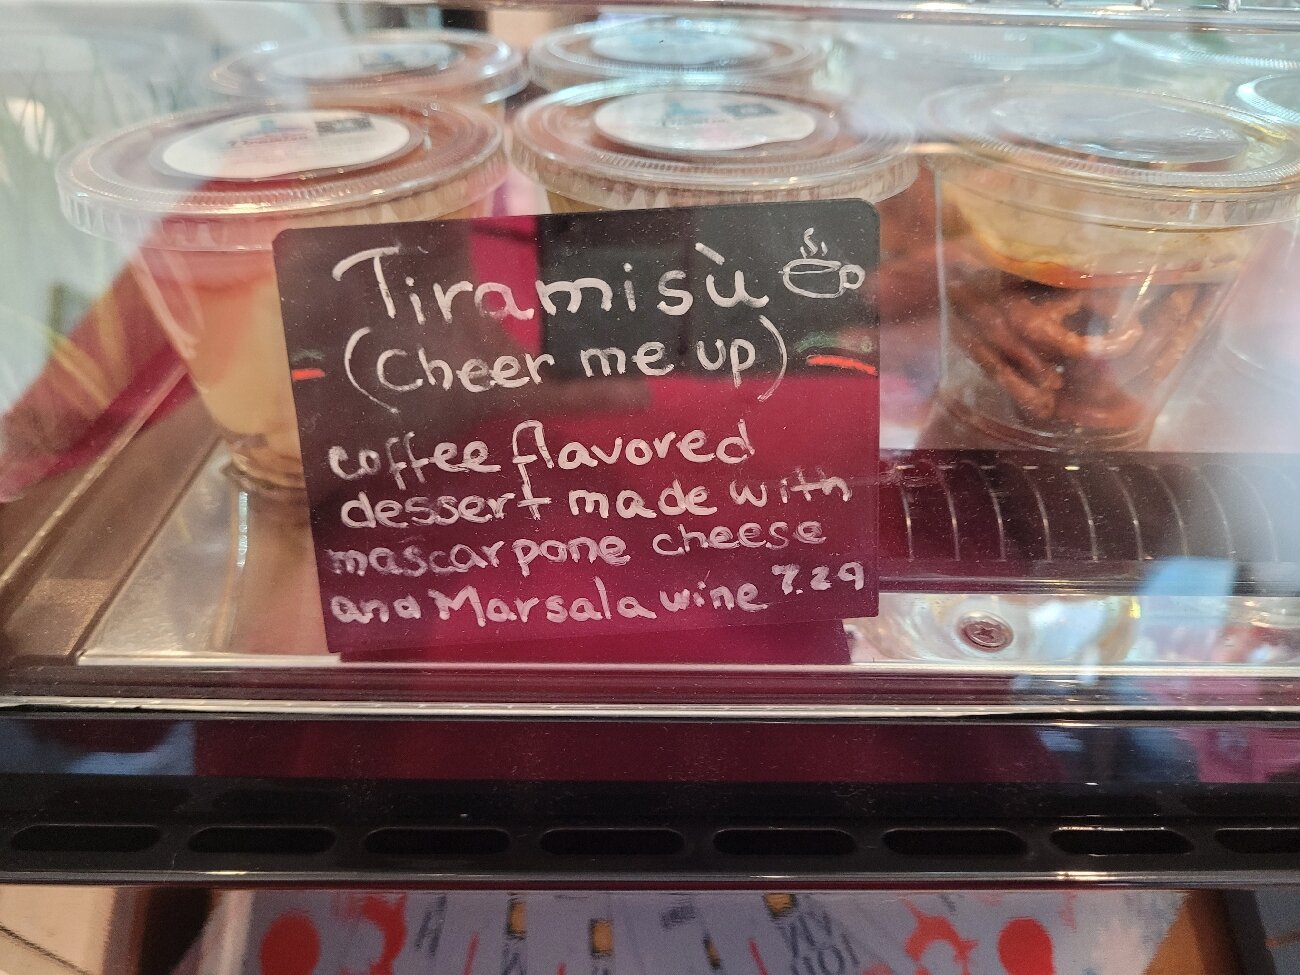 Tiramisù
(Cheer me up)
coffee flavored
dessert made with
mascarpone cheese
and Marsala wine 7.29